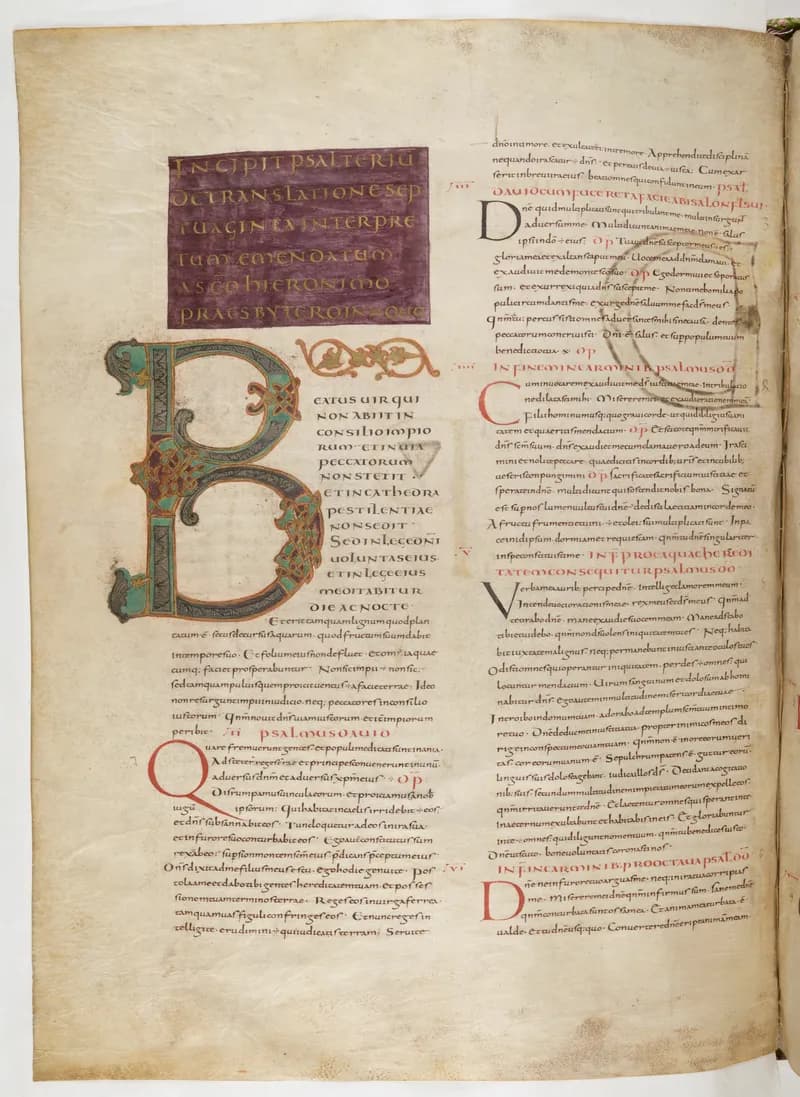 INCIPIT PSALTERIU
DE TRANSLATIONE SEP
TUAGINTA INTERPRE
TUM EMENDATUM
A SCO HIERONIMO
PRAESBYTERO IN
EATUS UIR QUI
NON ABIIT IN
CONSILIO IMPIO
RUM ET IN UIA
PECCATORUM
NON STETIT
ET IN CATHEDRA
PESTILENTIAE
NON SEDIT
SED IN LEGE DNI
UOLUNTAS EIUS
ET IN LEGE EIUS
MEDITABITUR
DIE AC NOCTE
Et erit tamquam lignum quod plan
tatum ē secus decursus aquarum quod fructum suum dabit
in tempore suo Et folium eius non defluet et omia quae
cumq; faciet prosperabuntur Non sic impii non sic
sed tamquam puluis quem proicit uentus a facie terrae Ideo
non resurgunt impii in iudicio neq; peccatores in consilio
iustorum Qnm nouit dns uiam iustorum et iter impiorum
peribit II PSALMUS DAUID
Quare fremuerunt gentes et populi meditati sunt inania
Adstiterunt reges terrae et principes conuenerunt in unū
aduersus dnm et aduersus xpm eius
Disrumpamus uincula eorum et proiciamus a nob
iugū ipsorum Qui habitat in caelis irridebit eos
et dns subsannabit eos Tunc loquetur ad eos in ira sua
et in furore suo conturbabit eos Ego autem constitutus sum
rex ab eo sup sion montem scm eius pdicans pceptum eius
Dns dixit ad me filius meus es tu ego hodie genui te Pos
tula a me et dabo tibi gentes hereditatem tuam et pos ses
sionem tuam terminos terrae Reges eos in uirga ferrea
tamquam uas figuli confringes eos Et nunc reges in
tellegite erudimini qui iudicatis terram Seruite
dno in timore et exultate ei in tremore Apprehendite disciplinā
nequando irascatur dns et pereatis de uia iusta Cum exar
serit in breui ira eius beati omnes qui confidunt in eum PSAL
III DAUID CUM FUGERET A FACIE ABISALON FILII SUI
Dne quid multiplicati sunt qui tribulant me multi insurgunt
aduersum me Multi dicunt animae meae non ē salus
ipsi in dō eius Tu autem dne susceptor meus es
gloria mea et exaltans caput meū Uoce mea ad dnm clamaui et
exaudiuit me de monte sco suo Ego dormiui et soporatus
sum et exurrexi quia dns suscepit me Non timebo milia po
puli circumdantis me exurge dne saluum me fac ds meus
Qnm tu percussisti omnes aduersantes mihi sine causa dentes
peccatorum contriuisti Dni ē salus et sup populum tuum
benedictio tua
IIII IN FINEM IN CARMINIB PSALMUS DD
Cum inuocarem exaudiuit me ds iustitiae meae In tribulatio
ne dilatasti mihi Miserere mei et exaudi orationem meā
Filii hominum usq; quo graui corde ut quid diligitis uani
tatem et quaeritis mendacium Et scitote qnm mirificauit
dns scm suum dns exaudiet me cum clamauero ad eum Irasci
mini et nolite peccare quae dicitis in cordib; uris et in cubilib;
uestris compungimini Sacrificate sacrificium iustitiae et
sperate in dno multi dicunt quis ostendit nobis bona Signatū
est sup nos lumen uultus tui dne dedisti laetitiam in corde meo
A fructu frumenti uini et olei sui multiplicati sunt In pa
ce in id ipsum dormiam et requiescam qnm tu dne singulariter
in spe constituisti me V IN F P EA QUAE HEREDI
TATEM CONSEQUITUR PSALMUS DD
Verba mea auribus percipe dne intellege clamorem meum
Intende uoci orationis meae rex meus et ds meus Qnm ad
te orabo dne mane exaudies uocem meam Mane adstabo
tibi et uidebo qnm non ds uolens iniquitatem tu es Neq; habita
bit iuxta te malignus neq; permanebunt iniusti ante oculos tuos
Odisti omnes qui operantur iniquitatem perdes omnes qui
loquuntur mendacium Uirum sanguinum et dolosum abhomi
nabitur dns Ego autem in multitudine misericordiae tuae
Introibo in domum tuam adorabo ad templum scm tuum in timo
re tuo Dne deduc me in iustitia tua propter inimicos meos di
rige in conspectu meo uiam tuam Qnm non ē in ore eorum ueri
tas cor eorum uanum ē Sepulchrum patens ē guttur eorū
linguis suis dolose agebant iudica illos ds Decidant a cogitatio
nib; suis secundum multitudinem impietatum eorum expelle eos
qnm irritauerunt te dne Et laetentur omnes qui sperant in te
in aeternum exultabunt et habitabis in eis Et gloriabuntur
in te omnes qui diligunt nomen tuum qnm tu benedices iusto
Dne ut scuto bonae uoluntatis coronasti nos
VI IN F IN CARMINIB PRO OCTAUA PSAL DD
Dne ne in furore tuo arguas me neq; in ira tua corripias
me Miserere mei dne qnm infirmus sum sana me dne
qnm conturbata sunt ossa mea Et anima mea turbata ē
ualde et tu dne usq; quo Conuertere dne eripe animam meam